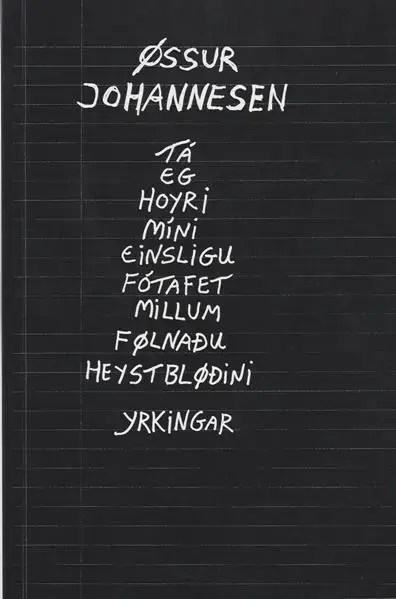 ØSSUR
JOHANNESEN
TÁ
EG
HOYRI
MÍNI
EINSLIGU
FÓTAFET
MILLUM
FØLNAÐU
HEYSTBLØÐINI
YRKINGAR